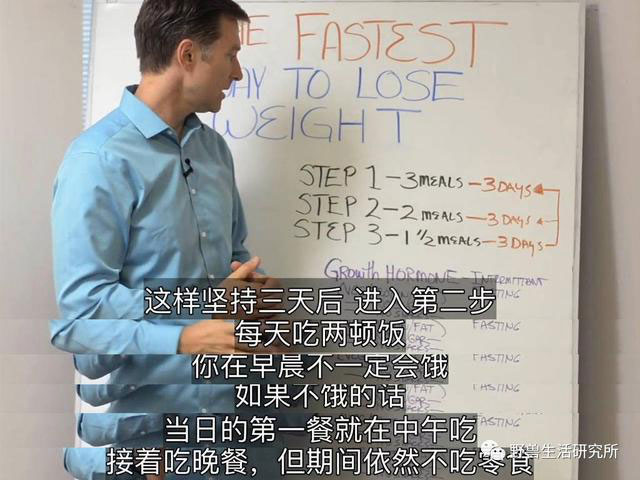 THE FASTEST
WAY TO LOSE
WEIGHT
STEP 1-3 MEALS - 3 DAYS
STEP 2-2 MEALS - 3 DAYS
STEP 3-1 1/2 MEALS - 3 DAYS
GROWTH HORMONE - INTERMITTENT
FASTING
这样坚持三天后 进入第二步
/FAT) FASTING
每天吃两顿饭
你在早晨不一定会饿
FASTING
如果不饿的话
FASTING
当日的第一餐就在中午吃
接着吃晚餐，但期间依然不吃零食
野兽生活研究所